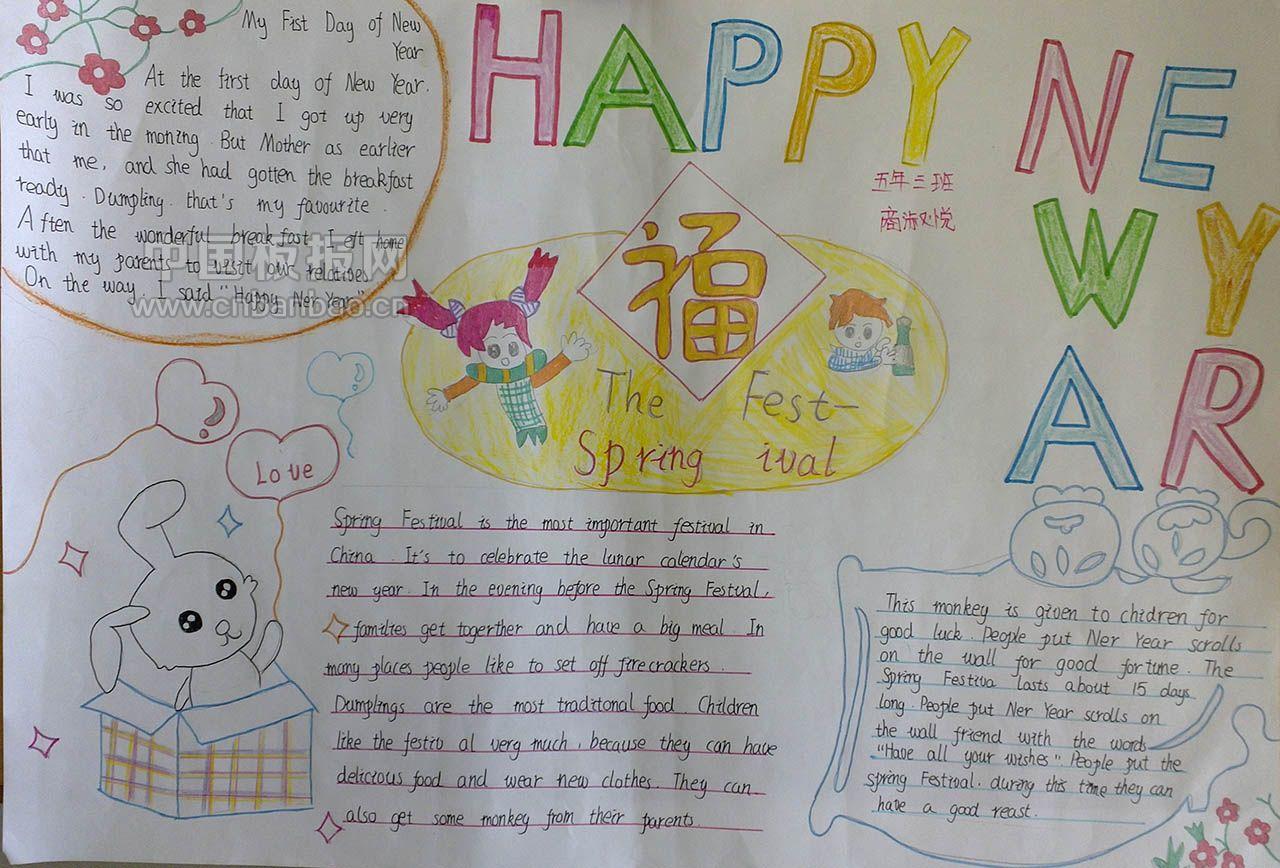 My Fist Day of New
Year
At the first day of New Year.
I was so excited that I got up very
early in the moning. But Mother as earlier
that me, and she had gotten the breakfast
ready. Dumpling. that's my favourite.
Aften the wonderful breakfast I eft home
with my parents to visit our relatives
On the way. I said "Happy Ner Year"
中国板报网
www.cnbanbao.cn
HAPPY NE
W Y
A R
五年三班
商淑悦
福
The Fest-
Spring ival
Love
Spring Festival is the most important festival in
China. It's to celebrate the lunar calendar's
new year. In the evening before the Spring Festval,
families get together and have a big meal. In
many places people like to set off firecrackers.
Dumplings are the most traditonal food. Children
like the festiv al very much, because they can have
delicious food and wear new clothes. They can
also get some monkey from their parents.
This monkey is given to chidren for
good luck. People put Ner Year scrolls
on the wall for good fortune. The
Spring Festiva lasts about 15 days
long. People put Ner Year scrolls on
the wall friend with the words
"Have all your wishes" People put the
spring Festival. during this time they can
have a good reast.